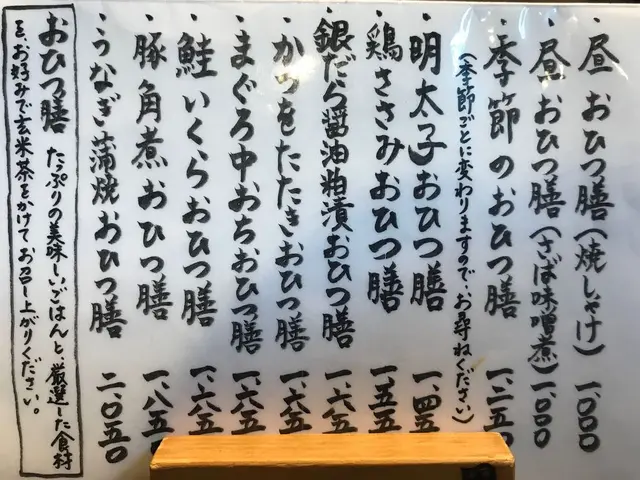 ・昼 おひつ膳(焼しゃけ) 一、〇〇〇
・昼 おひつ膳(さば味噌煮) 一、〇〇〇
・季節のおひつ膳 一、二五〇
(季節ごとに変わりますので、お尋ねください)
・明太子おひつ膳 一、四五
・鶏ささみおひつ膳 一、五五
・銀だら醤油粕漬おひつ膳 一、六五
・かつをたたきおひつ膳 一、六五
・まぐろ中おちおひつ膳 一、六五
・鮭いくらおひつ膳 一、八五
・豚角煮おひつ膳 一、八五
・うなぎ蒲焼おひつ膳 二、〇五〇
おひつ膳 たっぷりの美味しいごはんと、厳選した食材
を、お好みで玄米茶をかけてお召し上がりください。